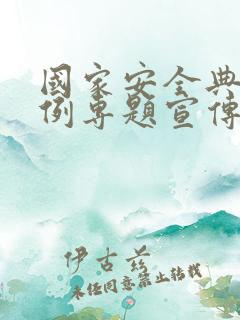 國家安全典
例専題宣傳
伊古苭
未经同意禁止转载